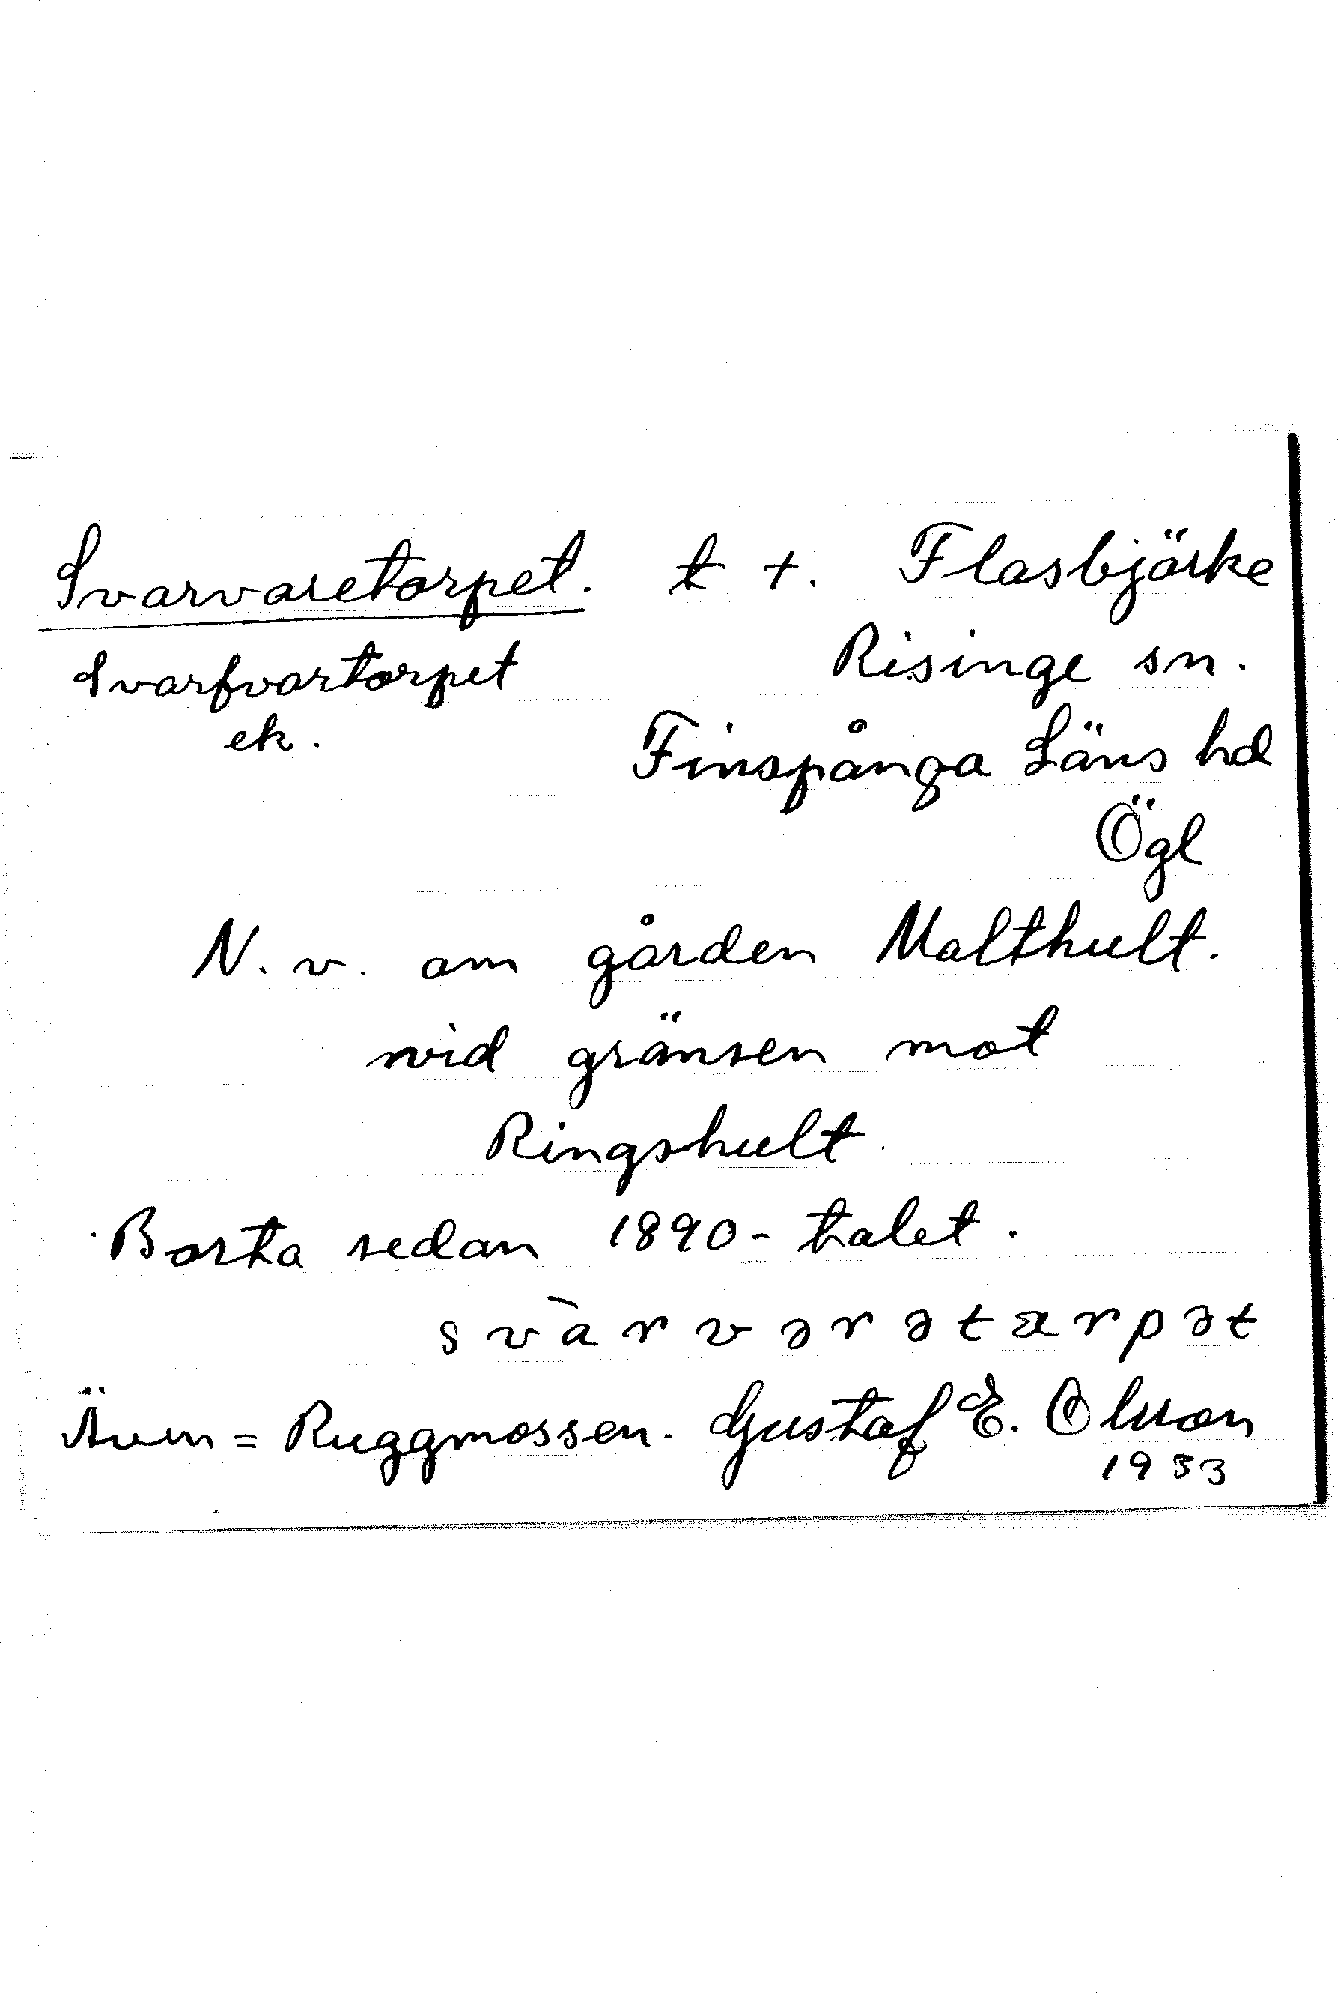 Svarvaretorpet. t +. Flasbjörke
Svarfvartorpet Risinge sn.
ek. Finspånga Läns hd
Ögl
N. v. om gården Malthult.
vid gränsen mot
Ringshult
Borta sedan 1890-talet.
svàrvərətarpət
Även = Ruggmossen. Gustaf E. Olsson
1933